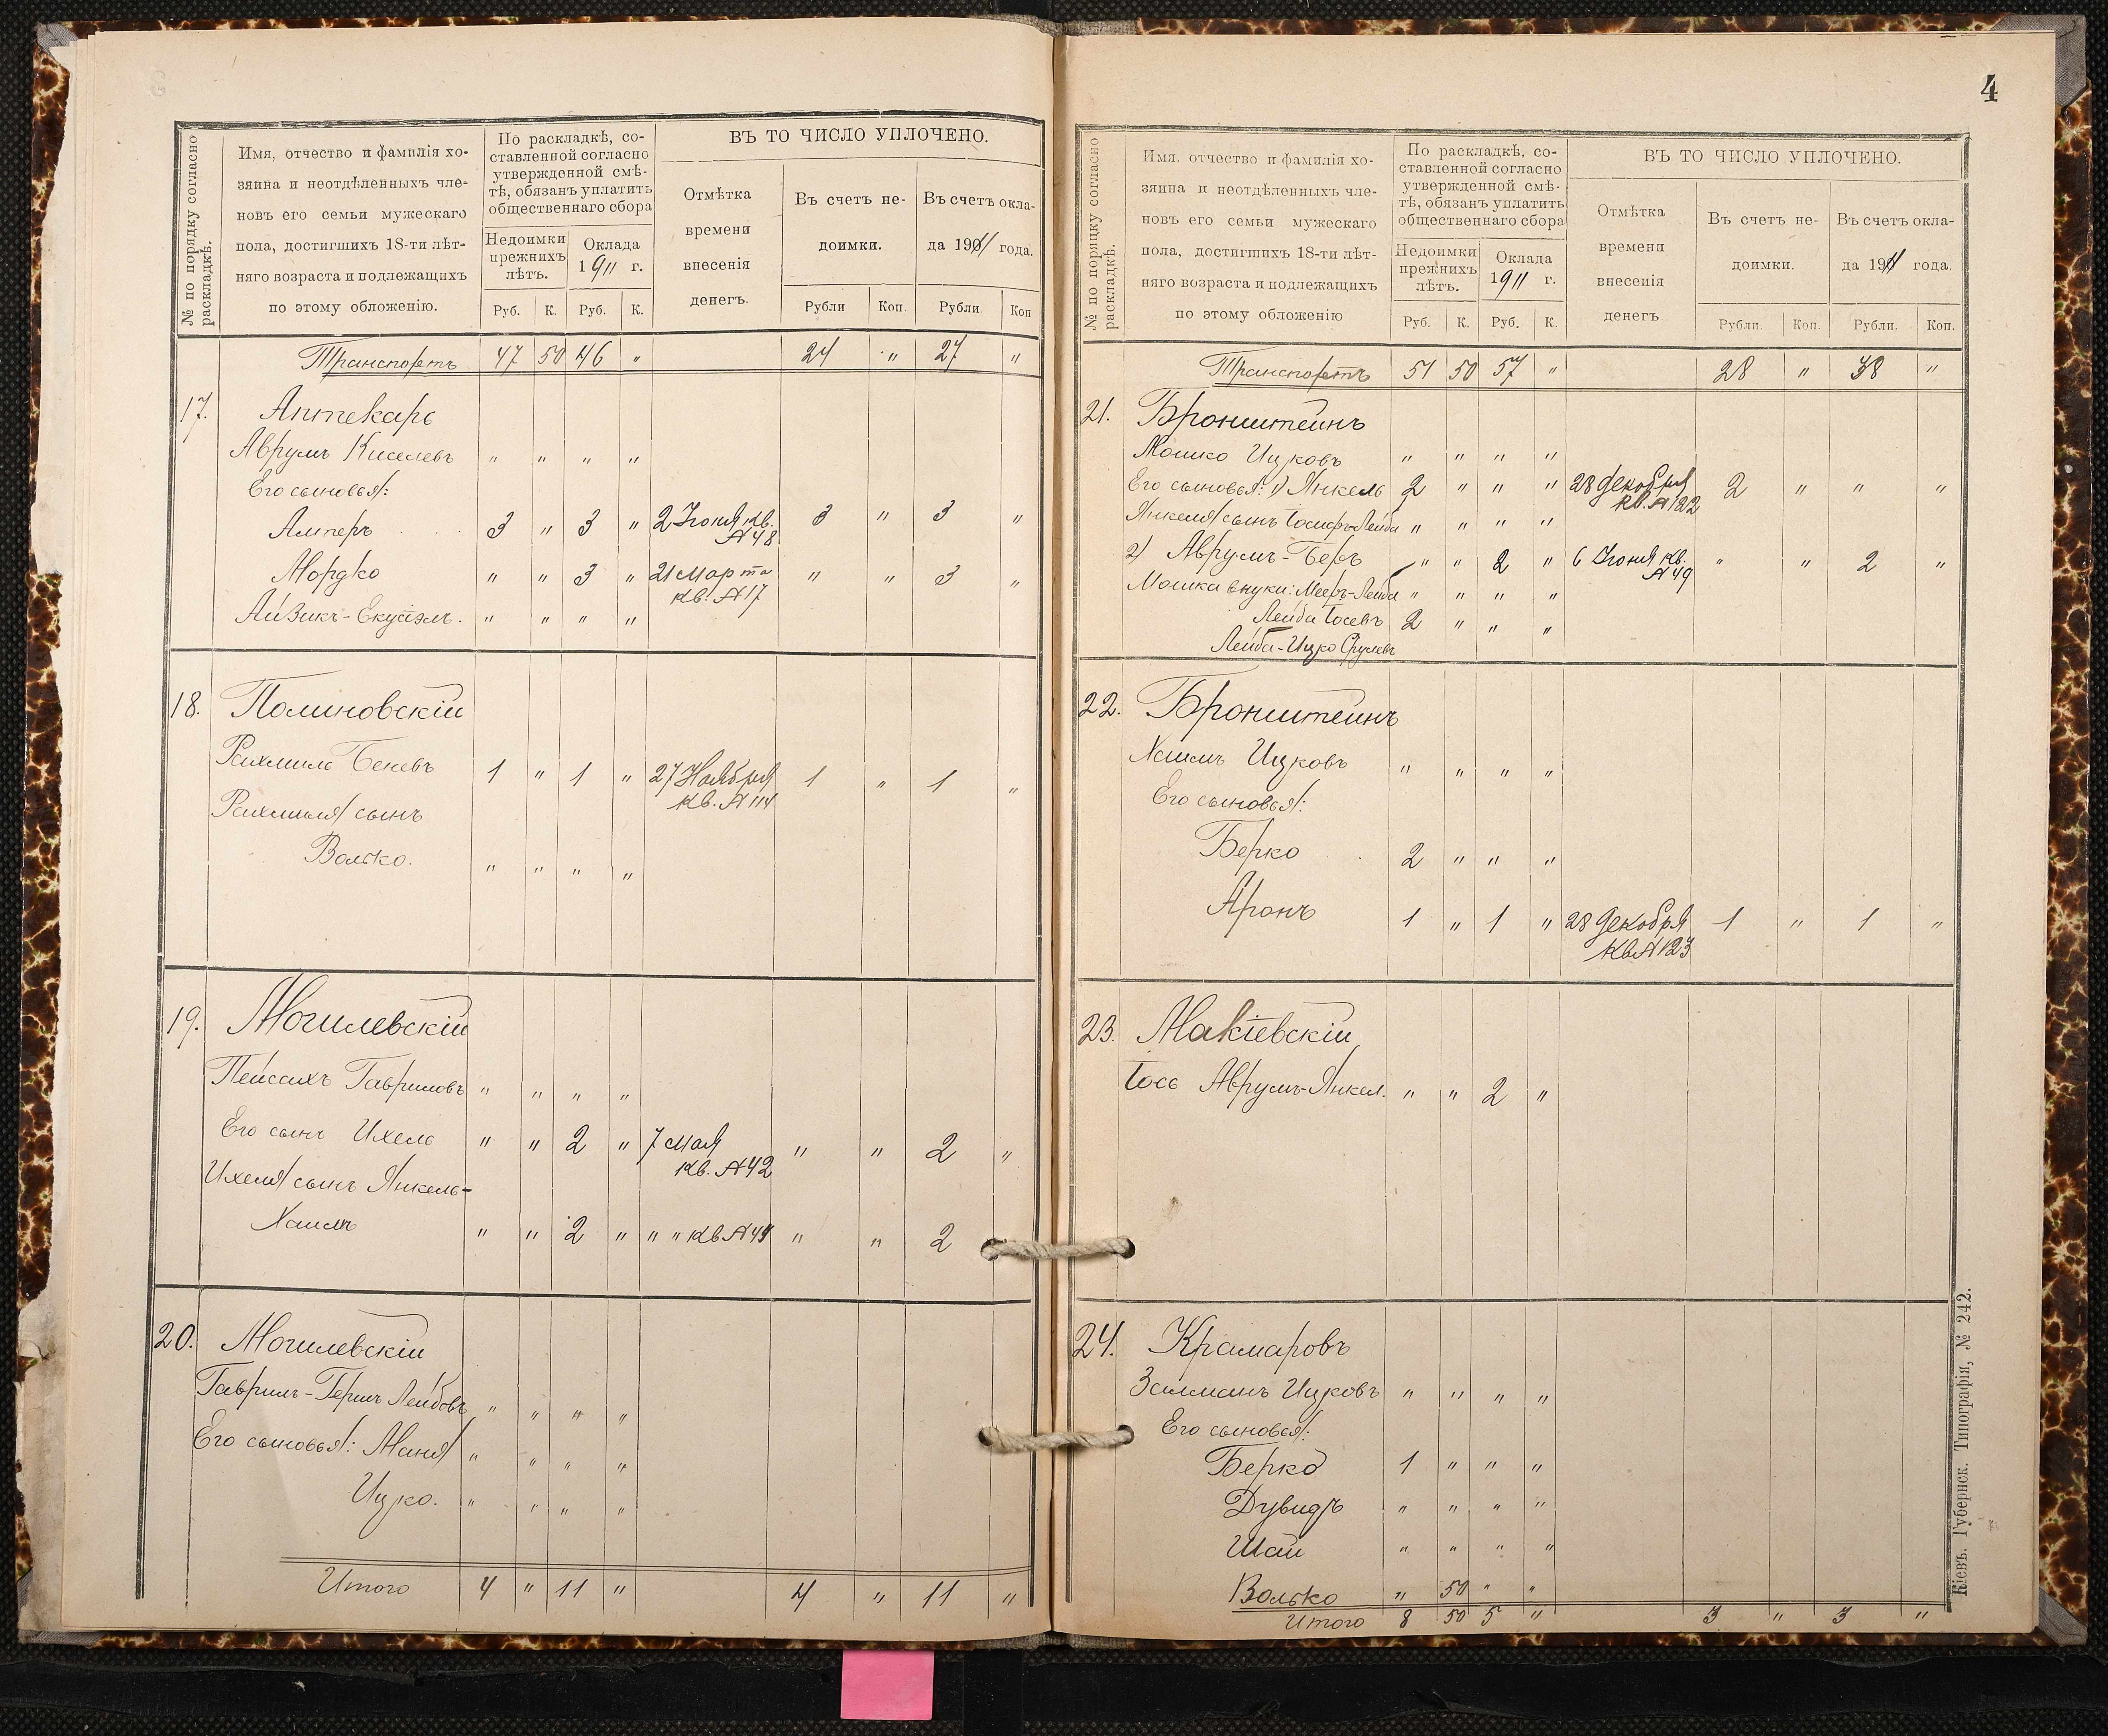 № по порядку согласно раскладкѣ.
Имя, отчество и фамилія хо-
зяина и неотдѣленныхъ чле-
новъ его семьи мужескаго
пола, достигшихъ 18-ти лѣт-
няго возраста и подлежащихъ
по этому обложенію.
По раскладкѣ, со-
ставленной согласно
утвержденной смѣ-
тѣ, обязанъ уплатить
общественнаго сбора
Недоимки прежнихъ лѣтъ.
Оклада 1911 г.
Руб. К. Руб. К.
ВЪ ТО ЧИСЛО УПЛОЧЕНО.
Отмѣтка
времени
внесенія
денегъ.
Въ счетъ не-
доимки.
Въ счетъ окла-
да 1911 года.
Рубли Коп. Рубли Коп
Транспортъ 47 50 46 " 24 " 27 "
17. Аптекарь
Аврумъ Киселевъ " " " "
Его сыновья:
Амперъ 3 " 3 " 2 Іюня кв. 3 " 3 "
№ 48
Мордко " " 3 " 21 Марта " " 3 "
кв. № 17
Айзикъ-Екусіэлъ. " " " "
18. Полиновскій
Рахмиль Беневъ 1 " 1 " 27 Ноября 1 " 1 "
кв. № 114
Рахмиля сынъ
Волько. " " " "
19. Могилевскій
Пейсахъ Гавриловъ " " " "
Его сынъ Ихель " " 2 " 7 Мая " " 2 "
кв. № 42
Ихеля сынъ Янкель-
Хаимъ " " 2 " " " кв № 44 " " 2
20. Могилевскій
Гаврилъ-Гершъ Лейбовъ " " " "
Его сыновья: Маня " " " "
Ицко. " " " "
Итого 4 " 11 " 4 " 11 "
4
№ по порядку согласно раскладкѣ.
Имя, отчество и фамилія хо-
зяина и неотдѣленныхъ чле-
новъ его семьи мужескаго
пола, достигшихъ 18-ти лѣт-
няго возраста и подлежащихъ
по этому обложенію
По раскладкѣ, со-
ставленной согласно
утвержденной смѣ-
тѣ, обязанъ уплатить
общественнаго сбора
Недоимки прежнихъ лѣтъ.
Оклада 1911 г.
Руб. К. Руб. К.
ВЪ ТО ЧИСЛО УПЛОЧЕНО.
Отмѣтка
времени
внесенія
денегъ
Въ счетъ не-
доимки.
Въ счетъ окла-
да 1911 года.
Рубли. Коп. Рубли. Коп.
Транспортъ 51 50 57 " 28 " 38 "
21. Бронштейнъ
Мошко Ицковъ " " " "
Его сыновья: 1) Янкель 2 " " " 28 Декабря 2 " " "
кв. № 122
Янкеля сынъ Іосифъ-Лейба " " " "
2) Аврумъ-Беръ " " 2 " 6 Іюня кв. " " 2 "
№ 49
Мошка внуки: Мееръ-Лейба " " " "
Лейба Іосевъ 2 " " "
Лейба-Ицко Срулевъ
22. Бронштейнъ
Хаимъ Ицковъ " " " "
Его сыновья:
Берко 2 " " "
Аронъ 1 " 1 " 28 Декабря 1 " 1 "
кв № 123
23. Макіевскій
Іось Аврумъ-Янкел. " " 2 "
24. Крамаровъ
Залманъ Ицковъ " " " "
Его сыновья:
Берко 1 " " "
Дувидъ " " " "
Шая " " " "
Волько " 50 " "
Итого 8 50 5 " 3 " 3 "
Кіевъ. Губернск. Типографія, № 242.